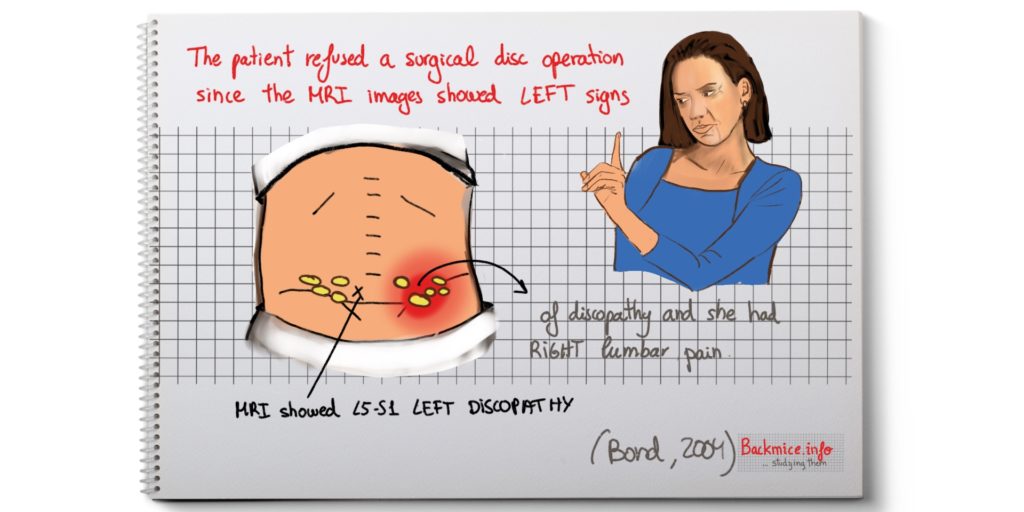 The patient refused a surgical disc operation
since the MRI images showed LEFT signs
of discopathy and she had
RIGHT lumbar pain.
MRI showed L5-S1 LEFT DISCOPATHY
(Bond, 2004)
Backmice.info
... studying them